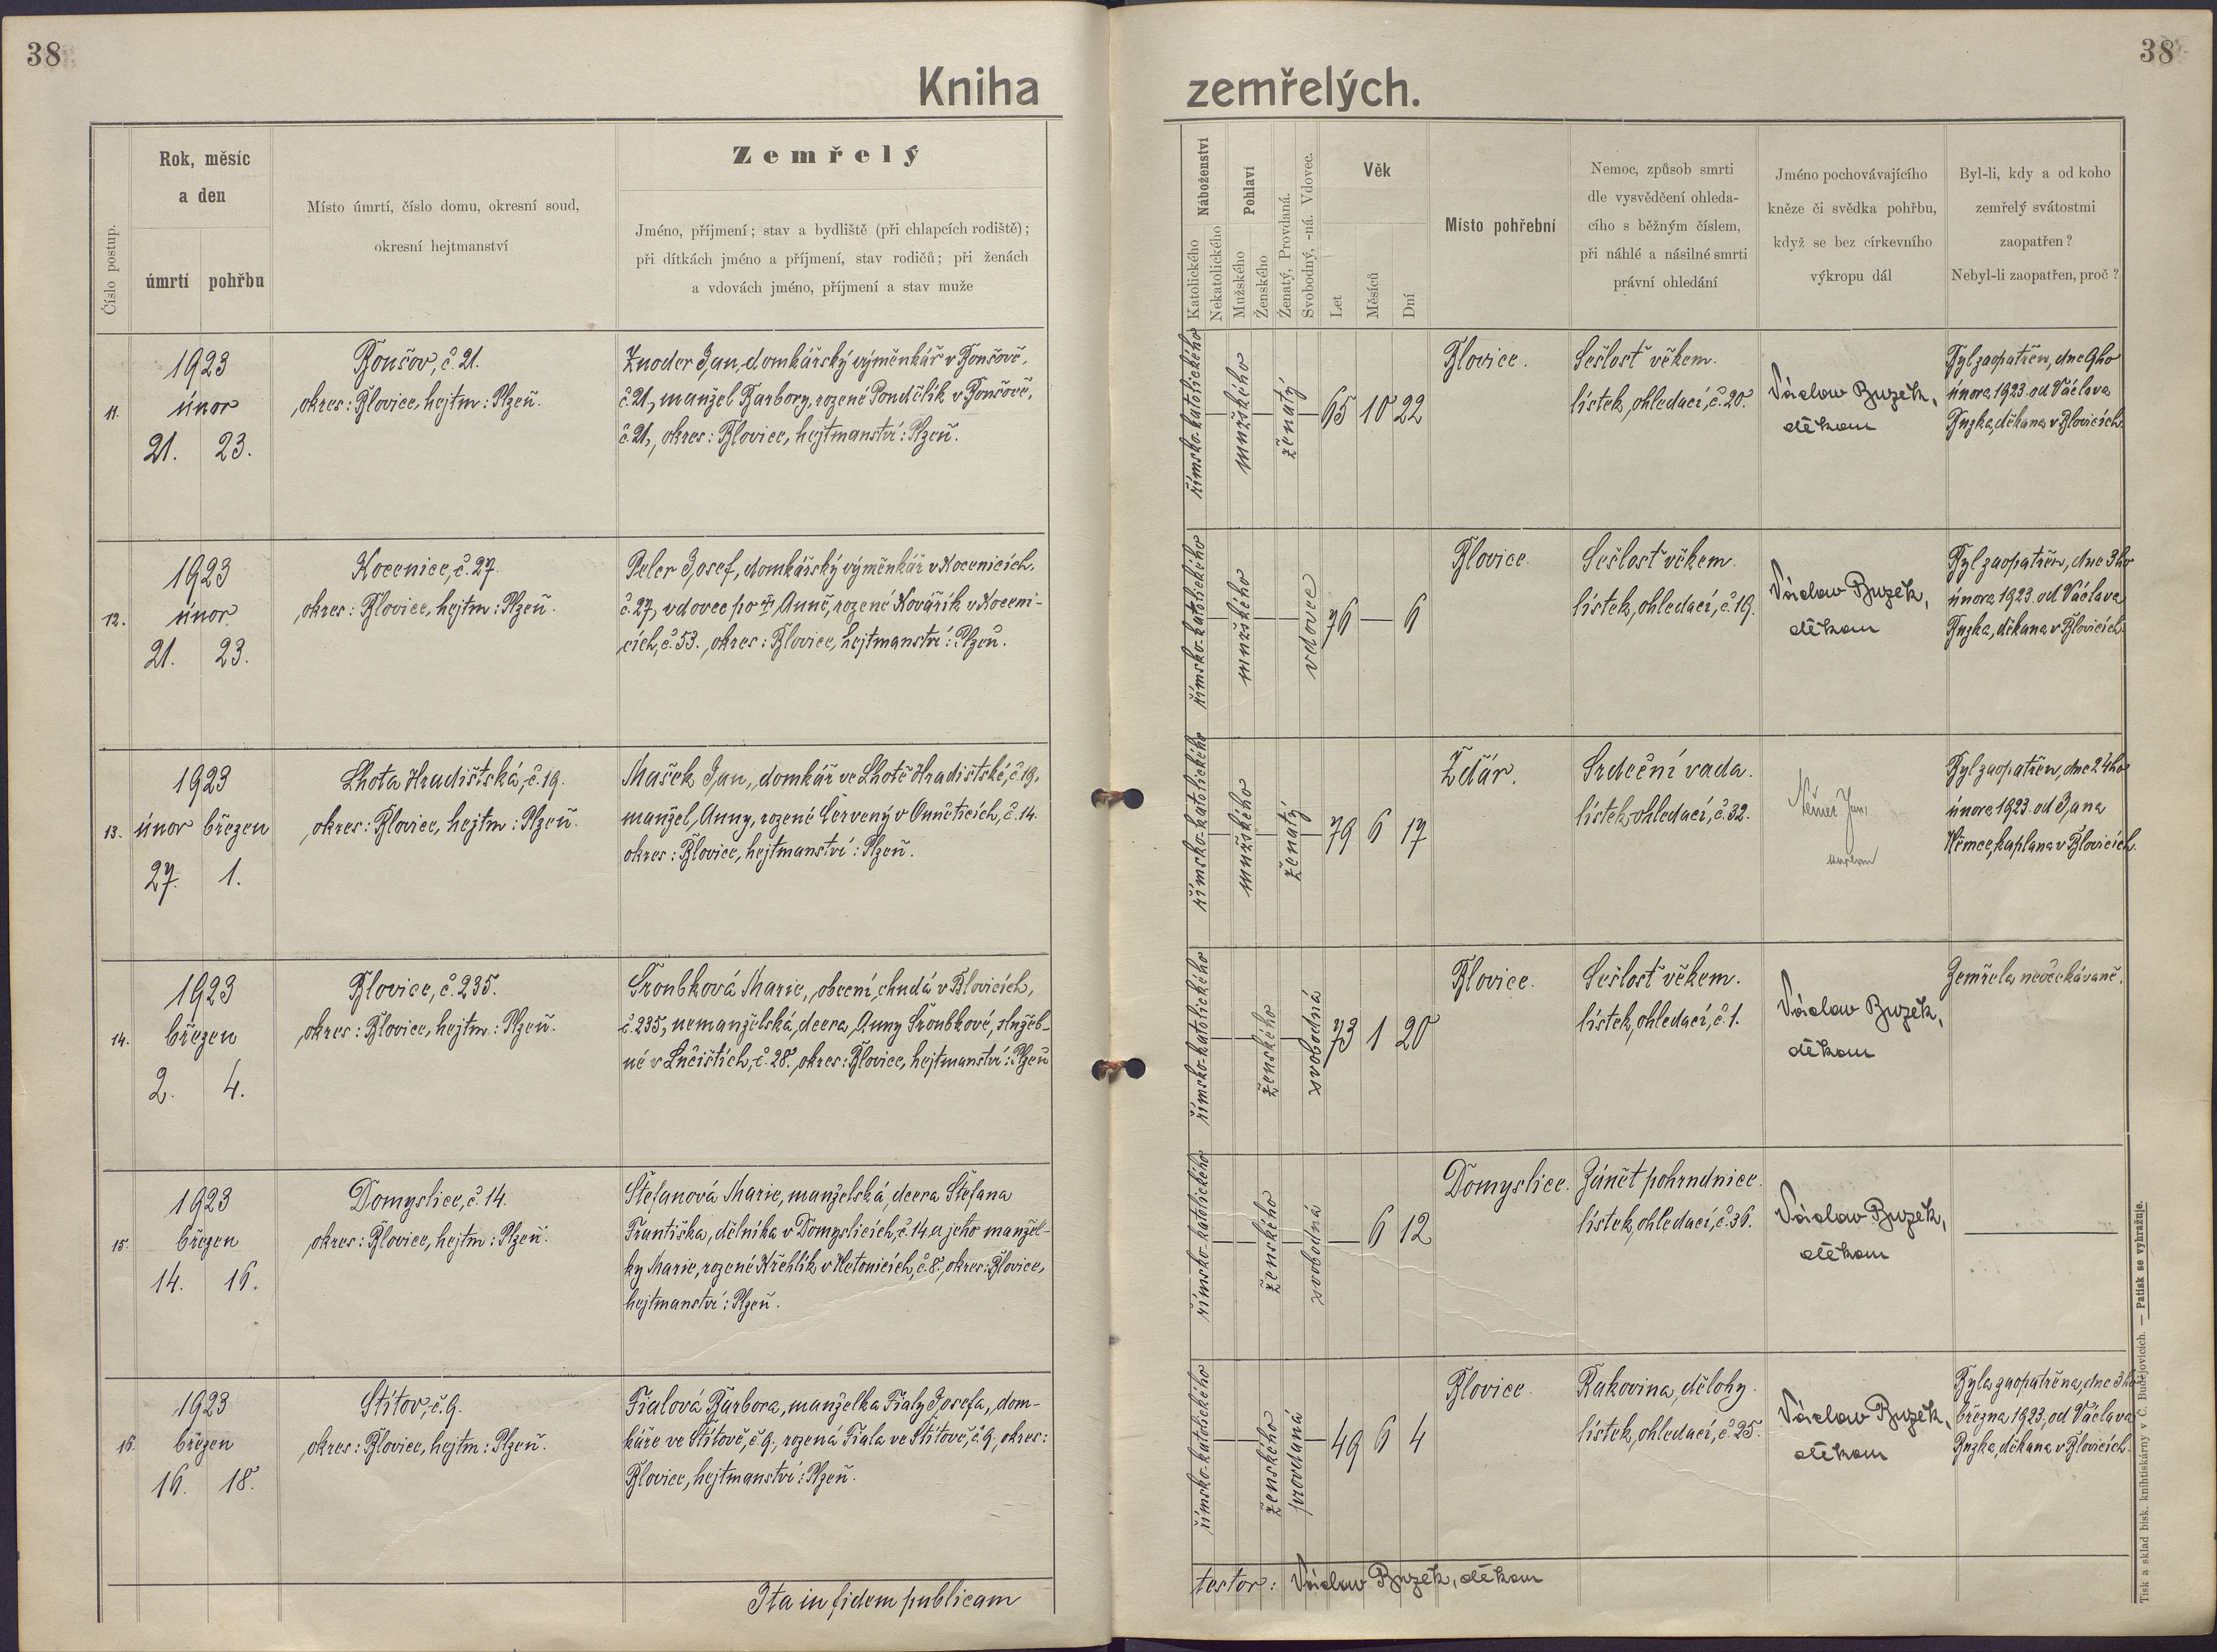 38
38
Kniha zemřelých.
Číslo postup.
Rok, měsíc
a den
úmrtí pohřbu
Místo úmrtí, číslo domu, okresní soud,
okresní hejtmanství
Zemřelý
Jméno, příjmení; stav a bydliště (při chlapcích rodiště);
při dítkách jméno a příjmení, stav rodičů; při ženách
a vdovách jméno, příjmení a stav muže
Náboženství
Katolického
Nekatolického
Pohlaví
Mužského
Ženského
Ženatý, Provdaná.
Svobodný, -ná. Vdovec.
Věk
Let
Měsíců
Dní
Místo pohřební
Nemoc, způsob smrti
dle vysvědčení ohleda-
cího s běžným číslem,
při náhlé a násilné smrti
právní ohledání
Jméno pochovávajícího
kněze či svědka pohřbu,
když se bez církevního
výkropu dál
Byl-li, kdy a od koho
zemřelý svátostmi
zaopatřen?
Nebyl-li zaopatřen, proč?
11.
1923
únor
21. 23.
Bonšov, č. 21.
okres: Blovice, hejtm: Plzeň.
Znoder Jan, domkářský výměnkář v Bonšově,
č. 21, manžel Barbory, rozené Pondělík v Bonšově,
č. 21, okres: Blovice, hejtmanství: Plzeň.
římsko-katolického
mužského
ženatý
65 10 22
Blovice.
Sešlosť věkem.
lístek, ohledací, č. 20.
Václav Buzek,
děkan
Byl zaopatřen, dne 9ho
února 1923. od Václava
Buzka, děkana v Blovicích.
12.
1923
únor
21. 23.
Kocenice, č. 27.
okres: Blovice, hejtm: Plzeň.
Peler Josef, domkářský výměnkář v Kocenicích,
č. 27, vdovec po † Anně, rozené Kovářík v Koceni-
cích, č. 53. okres: Blovice, hejtmanství: Plzeň.
římsko-katolického
mužského
vdovec
76 — 6
Blovice.
Sešlosť věkem.
lístek, ohledací, č. 19.
Václav Buzek,
děkan
Byl zaopatřen, dne 3ho
února 1923. od Václava
Buzka, děkana v Blovicích.
13.
1923
únor březen
27. 1.
Lhota Hradištská, č. 19.
okres: Blovice, hejtm: Plzeň.
Mašek Jan, domkář ve Lhotě Hradištské, č. 19,
manžel, Anny, rozené Červený v Onněticích, č. 14.
okres: Blovice, hejtmanství: Plzeň.
římsko-katolického
mužského
ženatý
79 6 17
Žďár.
Srdeční vada.
lístek, ohledací, č. 32.
Němec Jan,
Byl zaopatřen, dne 24ho
února 1923. od Jana
Němce, kaplana v Blovicích.
14.
1923
březen
2. 4.
Blovice, č. 235.
okres: Blovice, hejtm: Plzeň.
Šroubková Marie, obecní, chudá v Blovicích,
č. 235, nemanželská, dcera, Anny Šroubkové, služeb-
né v Lučištích, č. 28. okres: Blovice, hejtmanství: Plzeň
římsko-katolického
ženského
svobodná
73 1 20
Blovice.
Sešlosť věkem.
lístek, ohledací, č. 1.
Václav Buzek,
děkan
Zemřela neočekávaně.
15.
1923
březen
14. 16.
Domyslice, č. 14.
okres: Blovice, hejtm: Plzeň.
Štefanová Marie, manželská, dcera Štefana
Františka, dělníka v Domyslicích, č. 14. a jeho manžel-
ky Marie, rozené Křehlík v Ketonicích, č. 8., okres: Blovice,
hejtmanství: Plzeň.
římsko-katolického
ženského
svobodná
— 6 12
Domyslice.
Zánět pohrudnice.
lístek, ohledací, č. 36.
Václav Buzek,
děkan
16.
1923
březen
16. 18.
Štítov, č. 9.
okres: Blovice, hejtm: Plzeň.
Fialová Barbora, manželka Fialy Josefa, dom-
káře ve Štítově, č. 9., rozená Fiala ve Štítově, č. 9, okres:
Blovice, hejtmanství: Plzeň.
římsko-katolického
ženského
provdaná
49 6 4
Blovice.
Rakovina, dělohy.
lístek, ohledací, č. 25.
Václav Buzek,
děkan
Byla zaopatřena, dne 3ho
března 1923, od Václava
Buzka, děkana v Blovicích.
Ita in fidem publicam
testor: Václav Buzek, děkan
Tisk a sklad bisk. knihtiskárny v Č. Budějovicích. — Patisk se vyhražuje.